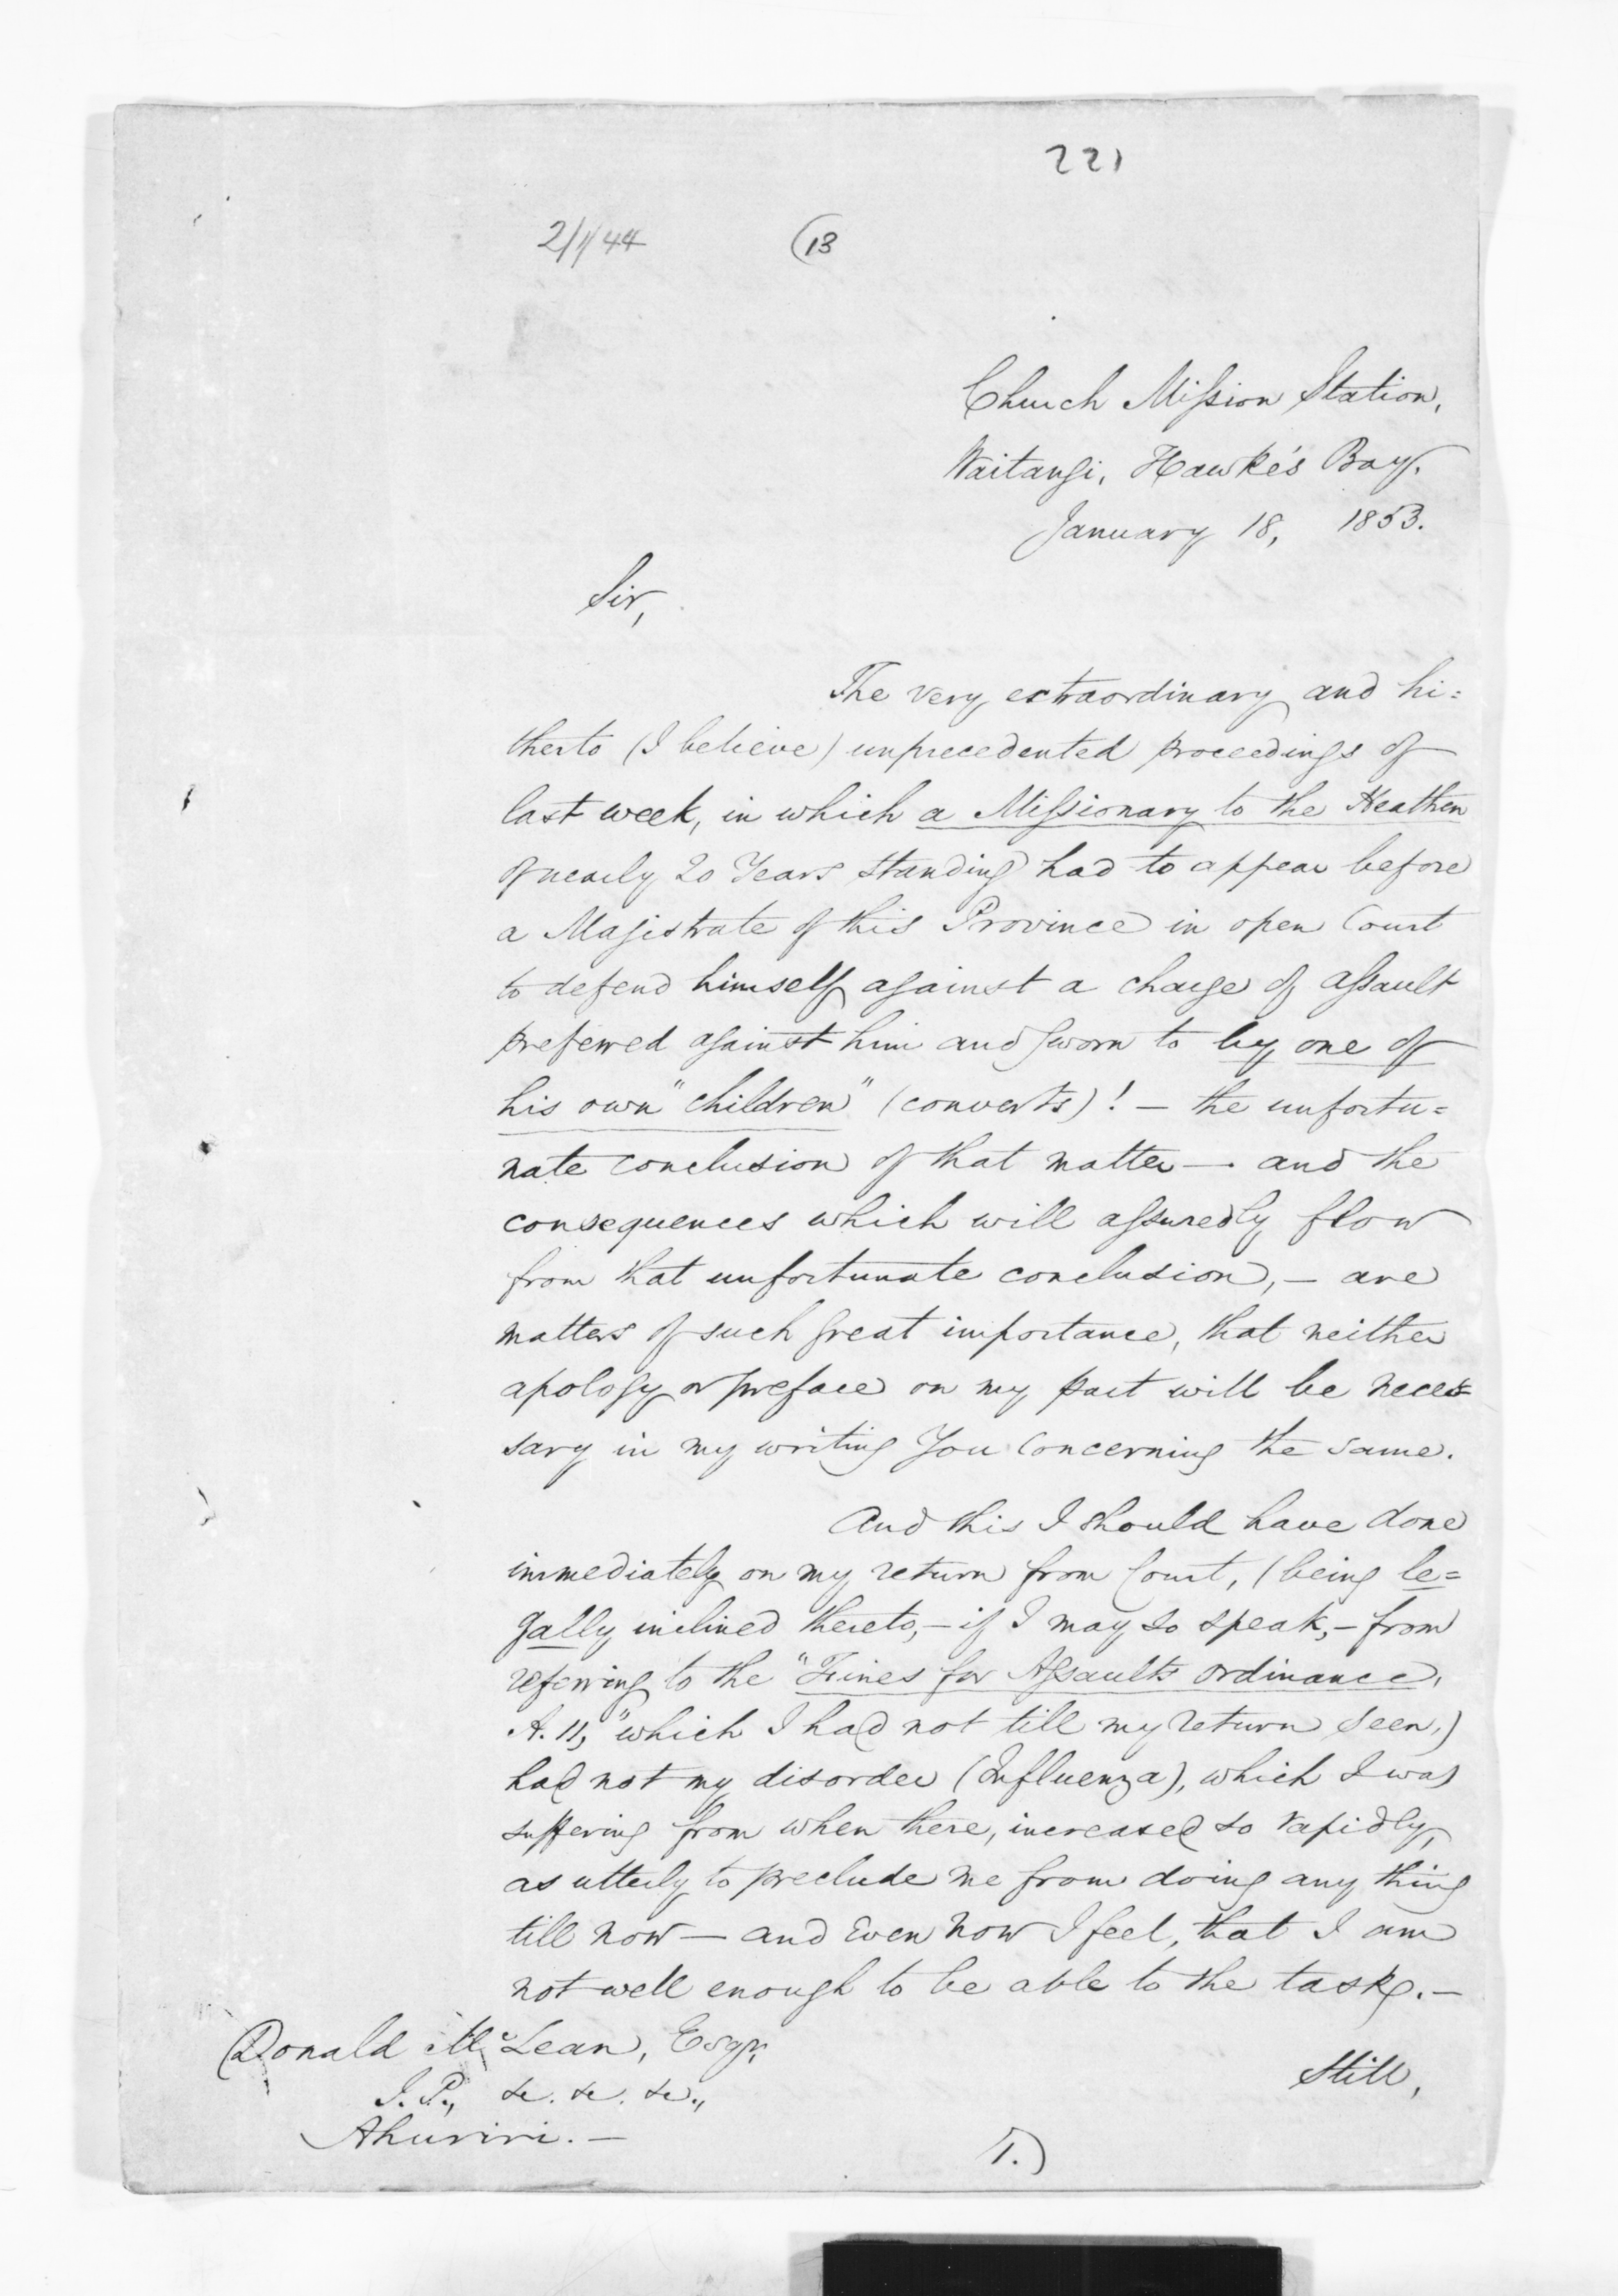 221
2/1/44 (13
Church Mission Station,
Waitangi, Hawke's Bay,
January 18, 1853.
Sir,
The very extraordinary and hi=
therto (I believe) unprecedented proceedings of
last week, in which a Missionary to the Heathen
of nearly 20 Years standing had to appear before
a Magistrate of this Province in open Court
to defend himself against a charge of Assault
preferred against him and sworn to by one of
his own "children" (converts)! — the unfortu=
nate conclusion of that matter — and the
consequences which will assuredly flow
from that unfortunate conclusion, — are
matters of such great importance, that neither
apology or preface on my part will be neces=
sary in my writing You concerning the same.
And this I should have done
immediately on my return from Court, (being le=
gally inclined thereto, — if I may so speak, — from
referring to the "Fines for Assaults Ordinance,
A. 11," which I had not till my return seen,)
had not my disorder (Influenza), which I was
suffering from when there, increased so rapidly,
as utterly to preclude me from doing any thing
till now — and even now I feel, that I am
not well enough to be able to the task. —
Donald McLean, Esqr,
J. P., &c. &c. &c.,
Ahuriri. —
Still,
1.)